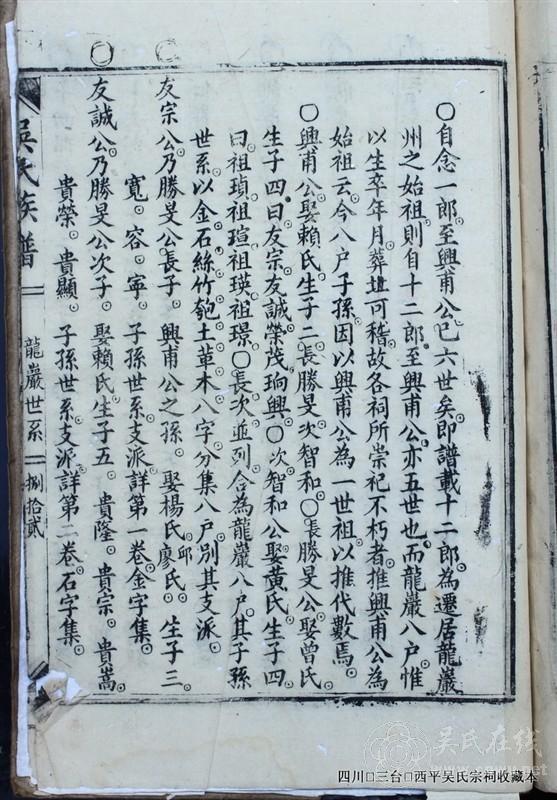 〇自念一郎至興甫公已六世矣即譜載十二郎為遷居龍巖
州之始祖則自十二郎至興甫公亦五世也而龍巖八户惟
以生卒年月葬塋可稽故各祠所崇祀不朽者推興甫公為
始祖云今八户子孫因以興甫公為一世祖以推代數焉
〇興甫公娶賴氏生子二長勝旻次智和〇長勝旻公娶曾氏
生子四曰友宗友誠榮茂珦興〇次智和公娶黄氏生子四
曰祖瑣祖瑄祖瑛祖璟〇長次並列合為龍巖八户其子孫
世系以金石絲竹匏土革木八字分集八户别其支派
〇友宗公乃勝旻公長子 興甫公之孫 娶楊氏邱廖氏 生子三
寛 容 寧 子孫世系支派詳第一卷金字集
〇友誠公乃勝旻公次子 娶賴氏生子五 貴隆 貴宗 貴嵩
貴榮 貴顯 子孫世系支派詳第二卷石字集
吳氏族譜 龍巖世系 捌拾貳
吴氏在线
四川□三台□西平吴氏宗祠收藏本